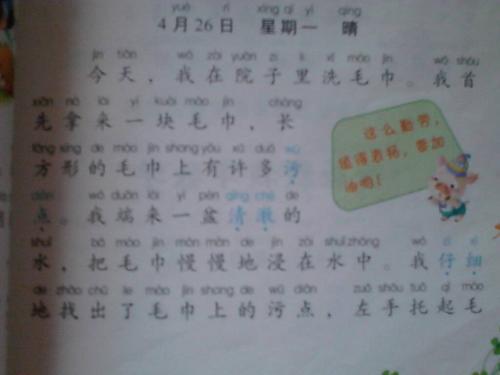 yuè rì xīng qī yī qíng
4月26日 星期一 晴
jīn tiān wǒ zài yuàn zi lǐ xǐ máo jīn wǒ shǒu
今天，我在院子里洗毛巾。我首
xiān ná lái yí kuài máo jīn cháng
先拿来一块毛巾，长
fāng xíng de máo jīn shang yǒu xǔ duō wū
方形的毛巾上有许多污
diǎn wǒ duān lái yì pén qīng chè de
点。我端来一盆清澈的
shuǐ bǎ máo jīn màn màn de jìn zài shuǐ zhōng wǒ zǐ xì
水，把毛巾慢慢地浸在水中。我仔细
de zhǎo chū le máo jīn shang de wū diǎn zuǒ shǒu tuō qǐ máo
地找出了毛巾上的污点，左手托起毛
这么勤劳，
值得表扬，要加
油哟！